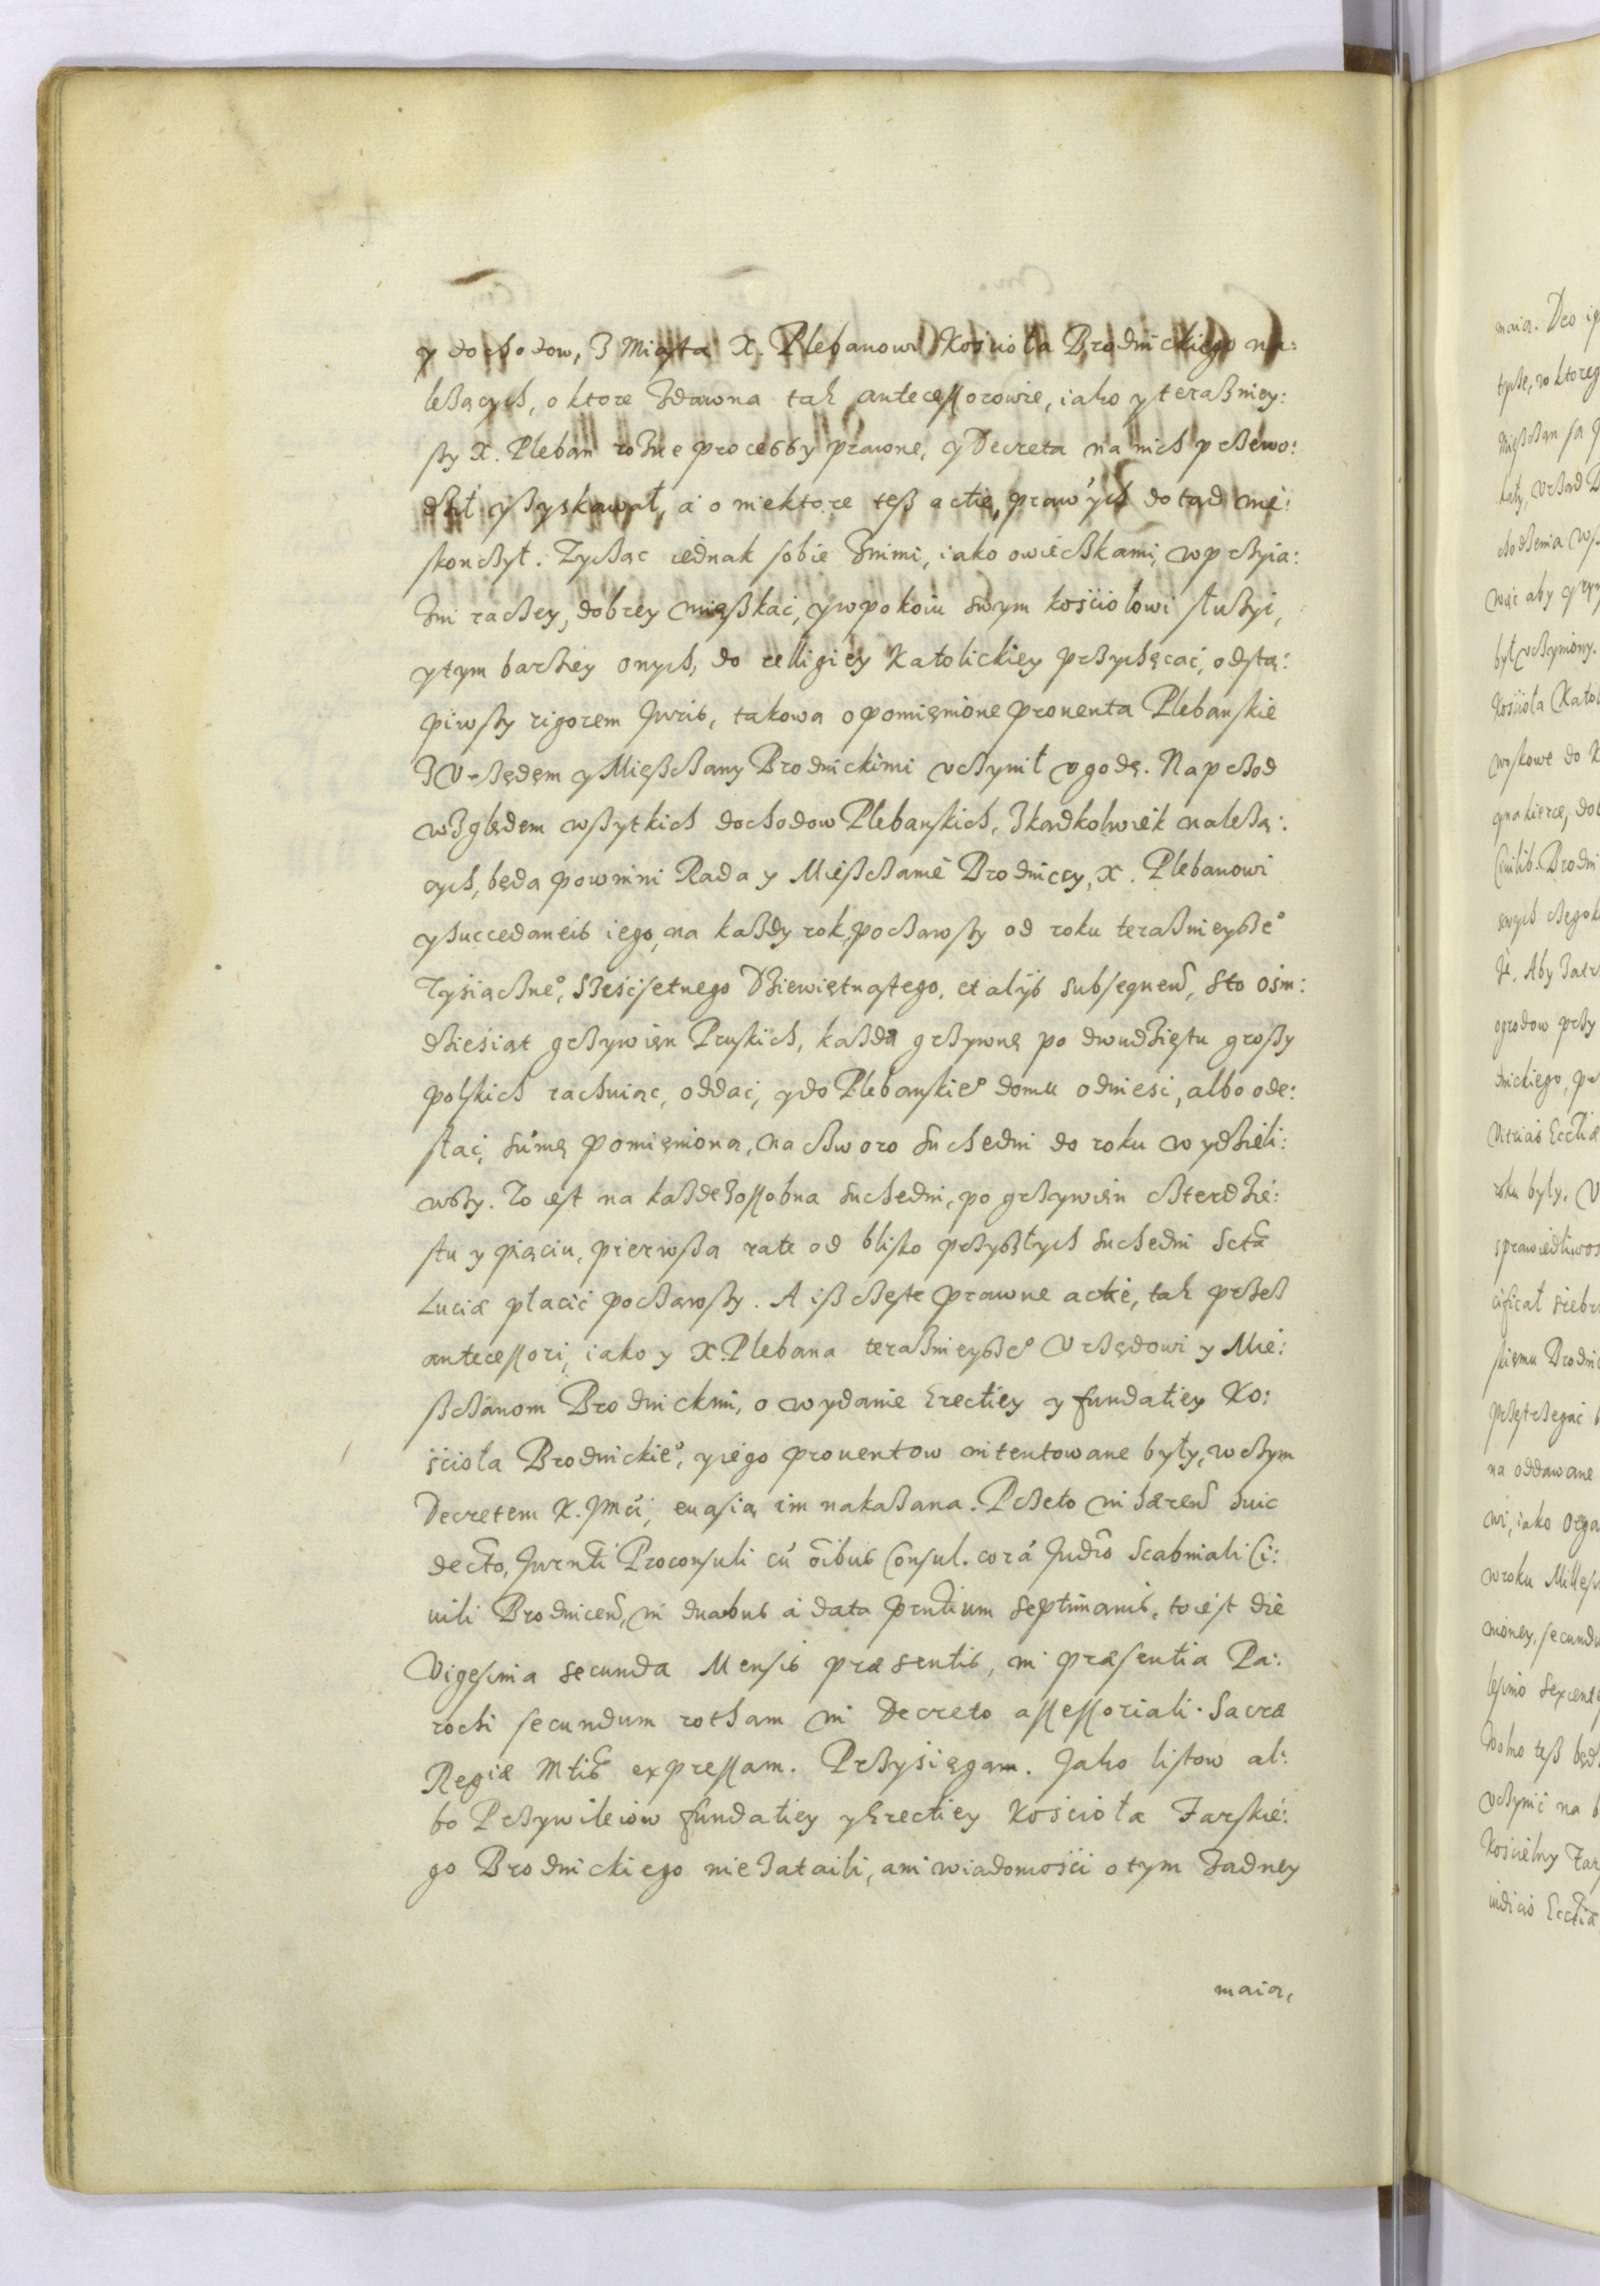 y dochodow, z Miasta X. Plebanowi Kościoła Brodnickiego na:
leżących, o ktore zdawna tak antecessorowie, iako y teraźniey:
szy X. Pleban rożne processy prawne, y Decreta na nich przewo:
dził y zyskował, a o niektore tesz actie prawnych dotąd nie:
skonczył. Zycząc iednak sobie znimi, iako owieczkami, w przyia:
zni raczey, dobrey mięszkać, y w pokoiu swym kościołowi służyć,
y tym barziey onych, do relligiey Katolickiey przychęcać, odstą:
piwszy rigorem Juris, takową o pomięnione prouenta Plebanskie
z Vrzędem y Mięszczany Brodnickimi vczynił vgodę. Naprzod
względem wszytkich dochodow Plebanskich, zkądkolwiek należą:
cych, będą powinni Rada y Mieszczanie Brodniccy, X. Plebanowi
y succedaneis iego, na każdy rok, począwszy od roku teraźnieysze°
Tysiączne°, Sześćsetnego Dziewiętnastego, et alijs subsequen, sto ośm:
dziesiąt grzywien Pruskich, każdą grzywnę po dwudziestu groszy
polskich rachuiąc, oddać, y do Plebanskie° domu odnieść, albo ode:
słać, sumę pomięnioną, na czworo suchedni do roku wydzieli:
wszy. To iest na każde zossobna suchedni, po grzywien czterdzie:
stu y pięciu, pierwszą ratę od blisko przyszłych suchedni Sctæ
Luciæ płacić począwszy. A isz częste prawne actie, tak przez
antecessori, iako y X. Plebana teraźnieysze° Vrzędowi y Mie:
szczanom Brodnickim, o wydanie Erectiey y fundatiey Ko:
ścioła Brodnickie°, y iego prouentow intentowane były, w czym
Decretem K. Jmći, euasia im nakazana. Przeto in hæren huic
decto, Jurnti Proconsuli cū oībus Consul. corā Judīo Scabinali Ci:
uili Brodnicen, in duabus a data pntium septimanis, to iest die
Vigesima secunda Mensis præsentis, in præsentia Pa:
rochi secundum rotham in Decreto assessoriali Sacræ
Regiæ Mtis expressam. Przysięgam. Jako listow al:
bo Przywileiow fundatiey y Erectiey Kościoła Farskie:
go Brodnickiego nie zataili, ani wiadomości o tym żadney
maią,